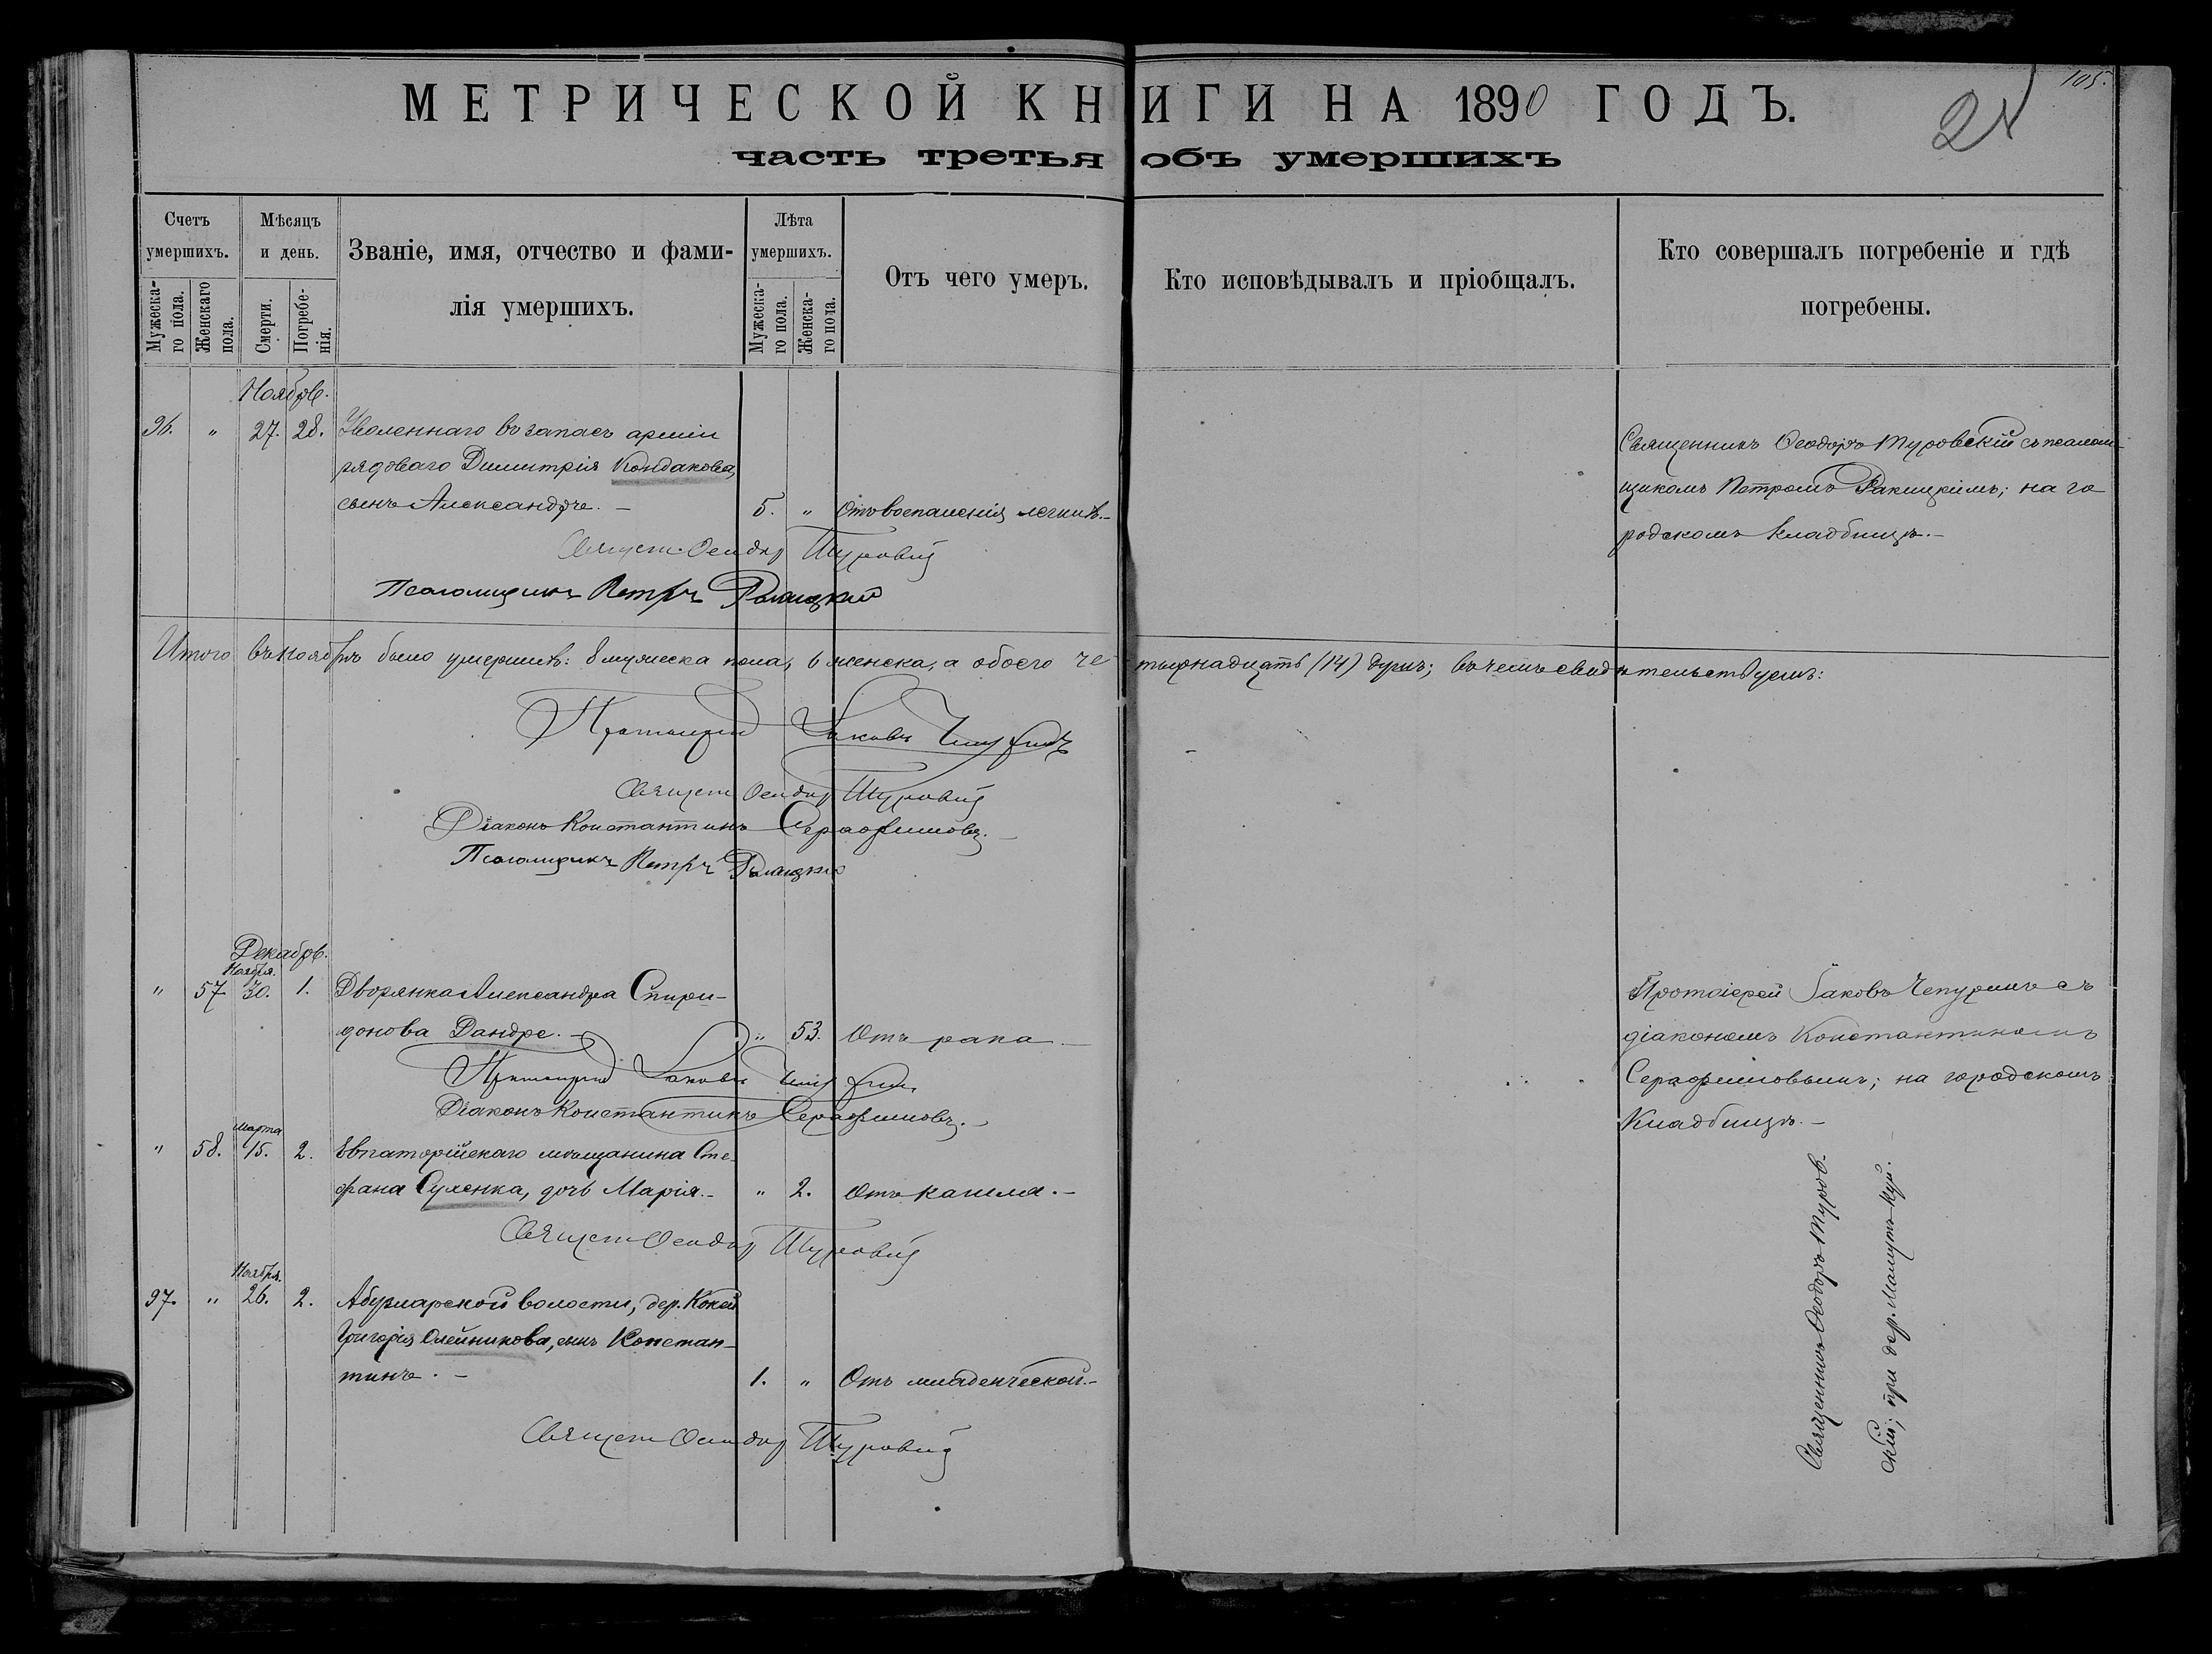 МЕТРИЧЕСКОЙ КНИГИ НА 1890 ГОДЪ.
105.
часть третья объ умершихъ
Счетъ умершихъ.
Мужеска-го пола.
Женскаго пола.
Мѣсяцъ и день.
Смерти.
Погребе-нія.
Званіе, имя, отчество и фами-
лія умершихъ.
Лѣта умершихъ.
Мужеска-го пола.
Женска-го пола.
Отъ чего умеръ.
Кто исповѣдывалъ и пріобщалъ.
Кто совершалъ погребеніе и гдѣ
погребены.
Ноябрь.
96. " 27. 28. Уволеннаго въ запасъ арміи
рядоваго Димитрія Кондакова,
сынъ Александръ. — 5. " Отъ воспаленія легкихъ. —
Священникъ Ѳеодоръ Туровскій съ псалом-
щикомъ Петромъ Ракицкимъ; на го
родскомъ кладбищѣ. —
Священ. Ѳеодоръ Туровскій
Псаломщикъ Петръ Ракицкій
Итого въ ноябрѣ было умершихъ: 8 мужеска пола, 6 женска, а обоего че-тырнадцать (14) душъ; въ чемъ свидѣтельствуемъ:
Протоіерей Іаковъ Чепуринъ
Священ Ѳеодоръ Туровскій
Діаконъ Константинъ Серафимовъ. —
Псаломщикъ Петръ Ракицкій
Декабрь.
Ноября.
" 57 30. 1. Дворянка Александра Спири-
донова Дандре. — " 53. Отъ рака —
Протоіерей Іаковъ Чепуринъ съ
діакономъ Константиномъ
Серафимовымъ; на городскомъ
Кладбищѣ. —
Протоіерей Іаковъ Чепуринъ
Діаконъ Константинъ Серафимовъ. —
Марта
" 58. 15. 2. Евпаторійскаго мѣщанина Сте-
фана Суленка, дочь Марія. — " 2. Отъ кашля. —
Священ Ѳеодоръ Туровскій
Ноября.
97. " 26. 2. Абузларской волости, дер. Кокей
Григорія Олейникова, сынъ Констан-
тинъ. — 1. " Отъ младенческой. —
Священ Ѳеодоръ Туровскій
Священникъ Ѳеодоръ Туров-
скій; при дер.